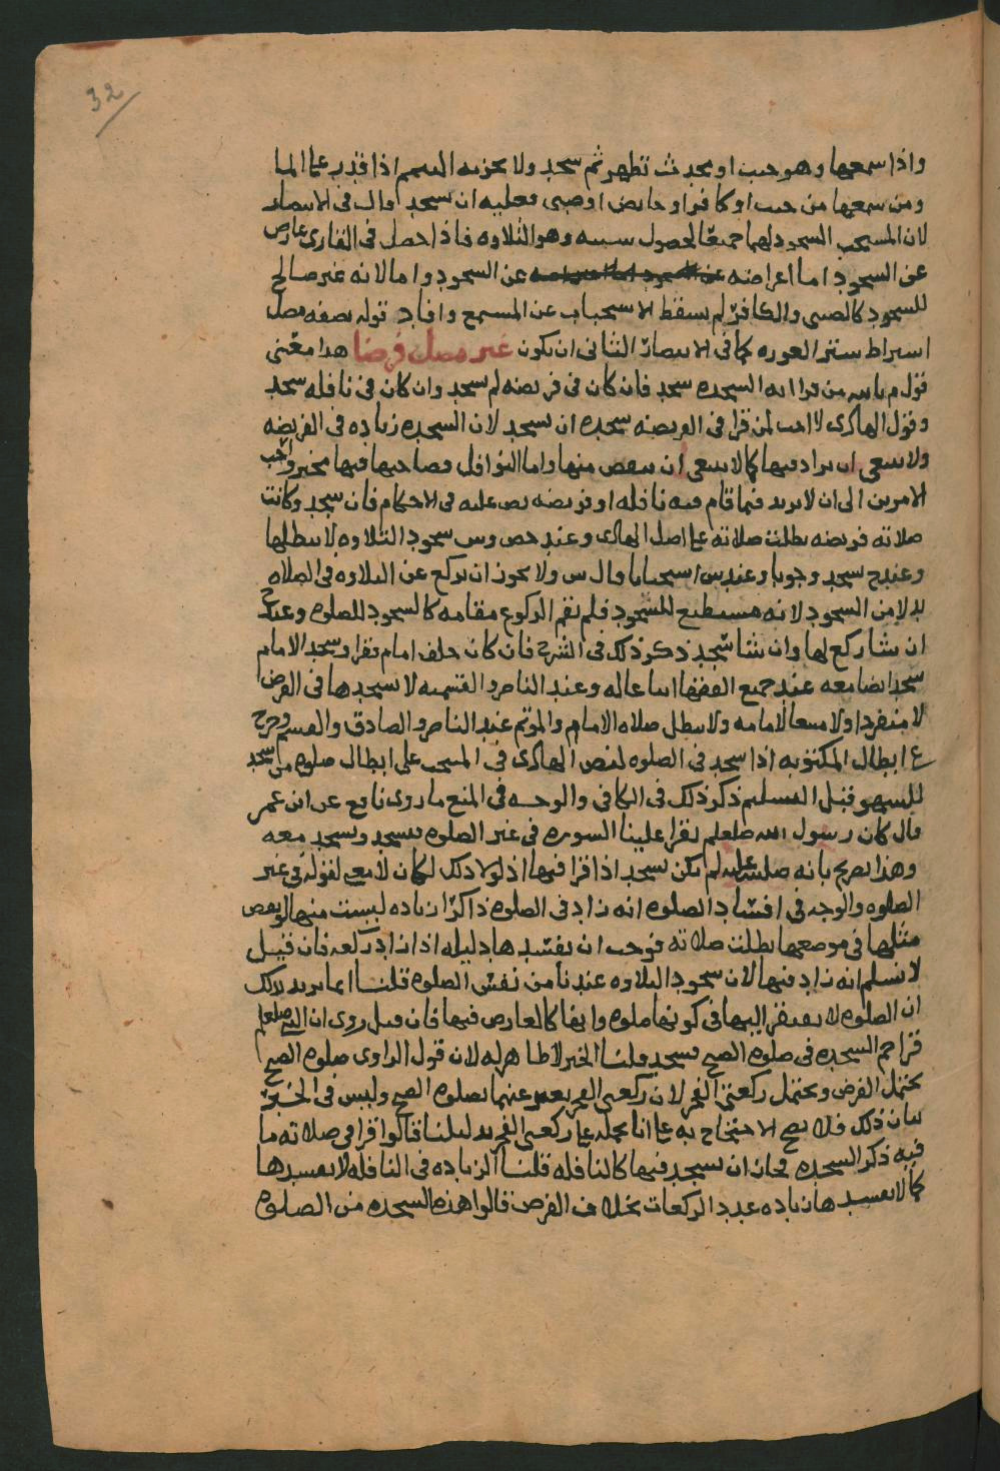 32
واذا سمعها وهو جنب او محدث تطهر ثم سجد ولا يجزيه التيمم اذا قدر على الما
ومن سمعها من جنب او كافر او حايض او صبى فعليه ان يسجد قال فى الانتصار
لان المستحب السجود لهما جميعا لحصول سببه وهو التلاوه فاذا حصل فى القارى عارض
عن السجود اما اعراضه عن السجود واما لانه غير صالح
للسجود كالصبى والكافر لم يسقط الاستحباب عن المستمع وافاد قوله بصفه مصل
اشتراط ستر العوره كما فى الانتصار الثانى ان يكون غير مصل فرضا هذا معنى
قول م بالله من قرا ايه السجده سجد فان كان فى فريضه لم يسجد وان كان فى نافله سجد
وقول الهادى لا احب لمن قرا فى الفريضه سجده ان يسجد لان السجده زياده فى الفريضه
ولا ينبغى ان يزاد فيها كما لا ينبغى ان ينقص منها واما النوافل فصاحبها فيها مخير واحب
الامرين الى ان لا يزيد فيما قام فيه نافله او فريضه نص عليه فى الاحكام فان سجد وكانت
صلاته فريضه بطلت صلاته على اصل الهادى وعند حص وس سجود التلاوه لا يبطلها
وعند ح سجد وجوبا وعند س استحبابا قال س ولا يجوز ان يركع عن التلاوه فى الصلاه
بدلا من السجود لانه مستطيع للسجود فلم يقم الركوع مقامه كالسجود للصلوه وعند ح
ان شا ركع لها وان شا سجد ذكر ذلك فى الشرح فان كان خلف امام فقرا وسجد الامام
سجد ايضا معه عند جميع الفقها اتباعا له وعند الناصر والقسميه لا يسجدها فى الفرض
لا منفردا ولا متبعا لامامه ولا يبطل صلاه الامام والموتم عند الناصر والصادق والقسم وخرج
ع ابطال المكتوبه اذا سجد فى الصلوه لنص الهادى فى المنتخب على ابطال صلوه من سجد
للسهو قبل التسليم ذكر ذلك فى الكافى والوجه فى المنع ما روى نافع عن ابن عمر
قال كان رسول الله صلعلم يقرا علينا السوره فى غير الصلوه فيسجد ونسجد معه
وهذا تصريح بانه صلى عليه لم يكن يسجد اذا قرا فيها اذ لولا ذلك لكان لا معنى لقوله فى غير
الصلوه والوجه فى افساد الصلوه انه زاد فى الصلوه ذاكرا زياده ليست منها لو نقص
مثلها فى موضعها بطلت صلاته فوجب ان يفسدها دليله اذا زاد ركعه فان قيل
لا نسلم انه زاد فيها لان سجود التلاوه عندنا من نفس الصلوه قلنا انما نريد بذلك
ان الصلوه لا تفتقر اليها فى كونها صلوه وانها كالعارض فيها فان قيل روى ان النبى صلعلم
قرا حم السجده فى صلوه الصبح فسجد قلنا الخبر لا ظاهر له لان قول الراوى صلوه الصبح
يحتمل الفرض ويحتمل ركعتى الفجر لان ركعتى الفجر يعبر عنهما بصلوه الصبح وليس فى الخبر
بيان ذلك فلا يصح الاحتجاج به على انا نحمله على ركعتى الفجر بدليلنا قالوا قرا فى صلاته ما
فيه ذكر السجده فجاز ان يسجد فيها كالنافله قلنا الزياده فى النافله لا تفسدها
كما لا تفسدها زياده عدد الركعات بخلاف الفرض قالوا هذه السجده من الصلوه